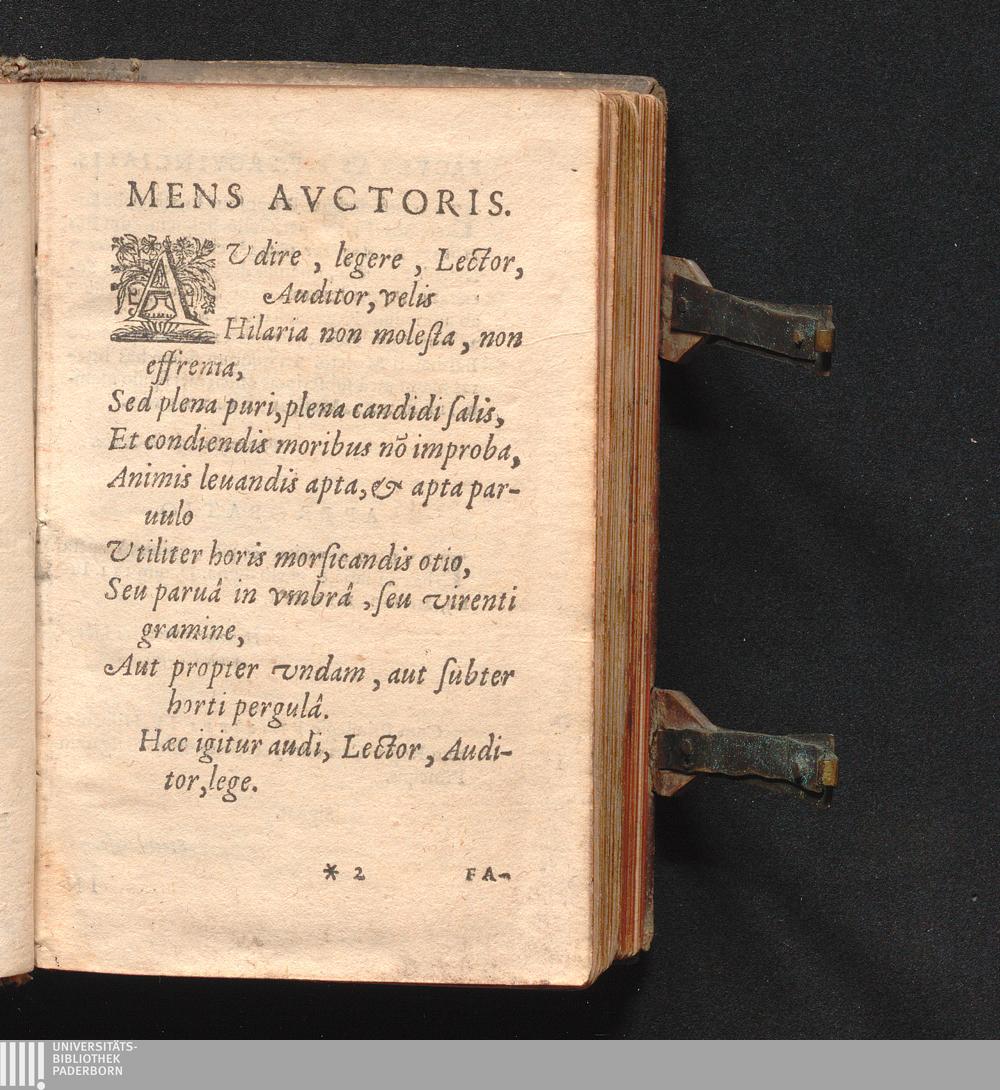 MENS AVCTORIS.
AVdire, legere, Lector,
Auditor, velis
Hilaria non molesta, non
effrenia,
Sed plena puri, plena candidi salis,
Et condiendis moribus nõ improba,
Animis leuandis apta, & apta par-
uulo
Vtiliter horis morsicandis otio,
Seu paruâ in vmbrâ, seu virenti
gramine,
Aut propter vndam, aut subter
horti pergulâ.
Hæc igitur audi, Lector, Audi-
tor, lege.
* 2 FA-
UNIVERSITÄTS-
BIBLIOTHEK
PADERBORN